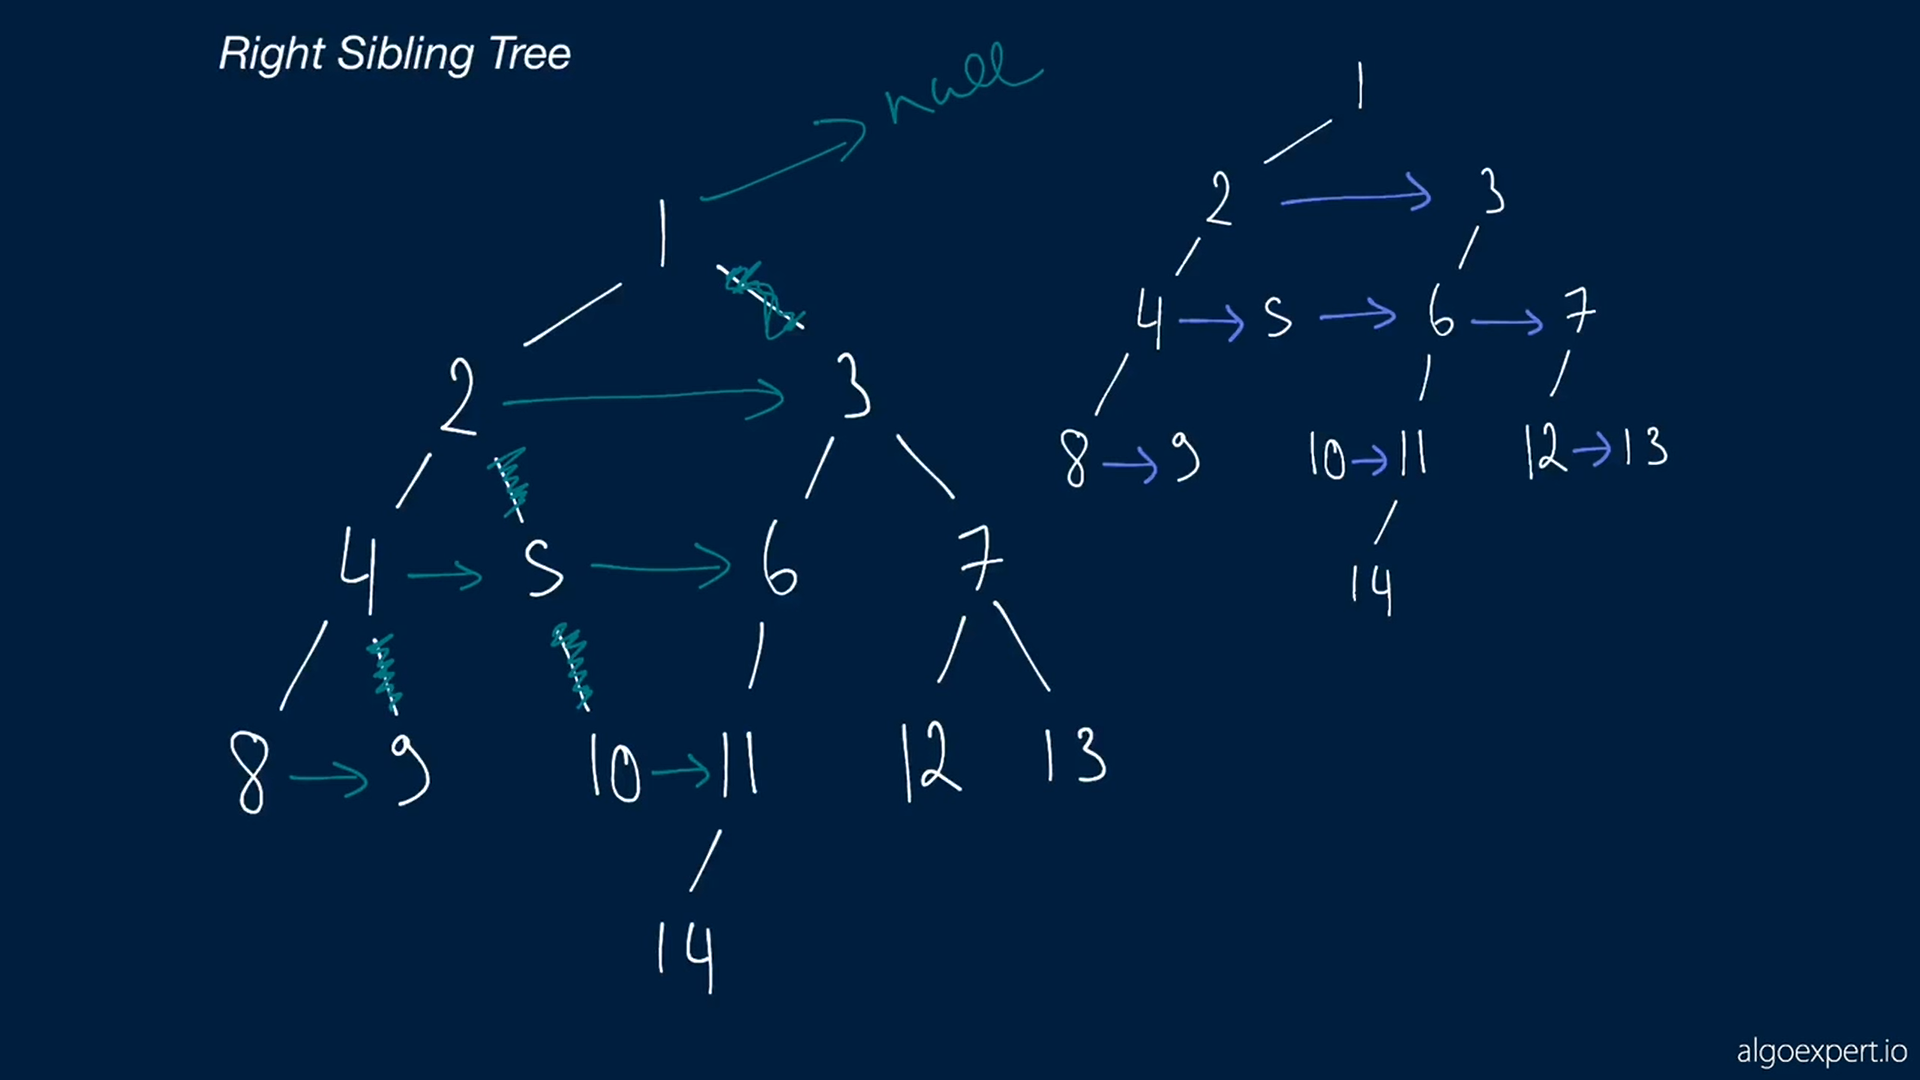 Right Sibling Tree
null
1
2 3
4 5 6 7
8 9 10 11 12 13
14
1
2 3
4 5 6 7
8 9 10 11 12 13
14
algoexpert.io